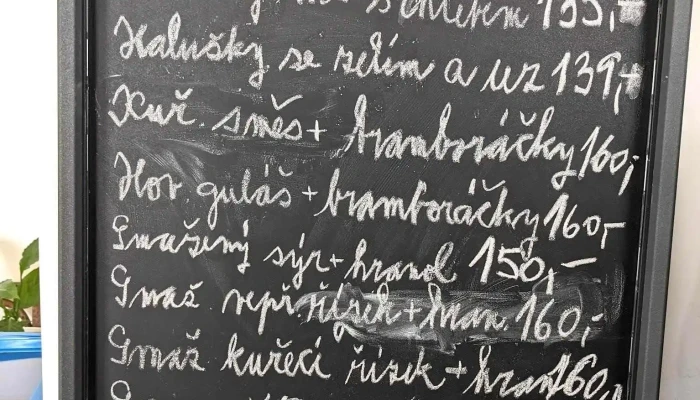 s chlebem 135,-
Halušky se zelím a uz 139,-
Kuř. směs + bramboráčky 160,-
Hov. guláš + bramboráčky 160,-
Smažený sýr + hranol 150,-
Smaž. vepř. řízek + hran. 160,-
Smaž kuřecí řízek + hran 160,